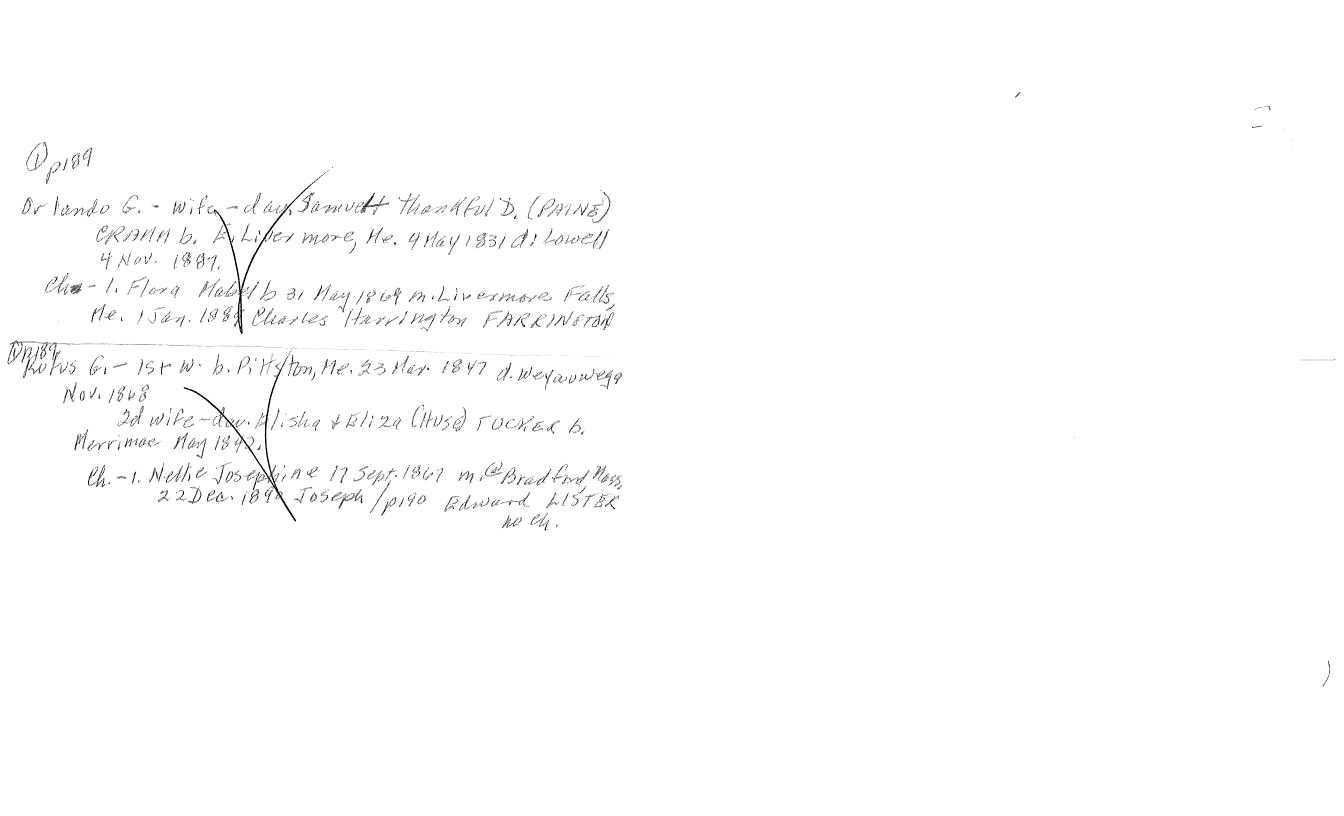 ① p189
Orlando G. - wife - dau. Samuel + Thankful D. (PAINE)
CRAMM b. E. Livermore, Me. 4 May 1831 d: Lowell
4 Nov. 1887.
Ch - 1. Flora Mabel b 31 May 1869 m. Livermore Falls,
Me. 1 Jan. 1888 Charles Harrington FARRINGTON
① p189
Rufus G. - 1st w. b. Pittston, Me. 23 Mar. 1847 d. Weyauwega
Nov. 1868
2d wife - dau. Elisha + Eliza (Huse) TUCKER b.
Merrimac May 1892.
Ch. - 1. Nellie Josephine 17 Sept. 1867 m. @ Bradford, Mass,
22 Dec. 1890 Joseph /p190 Edward LISTER
no ch.